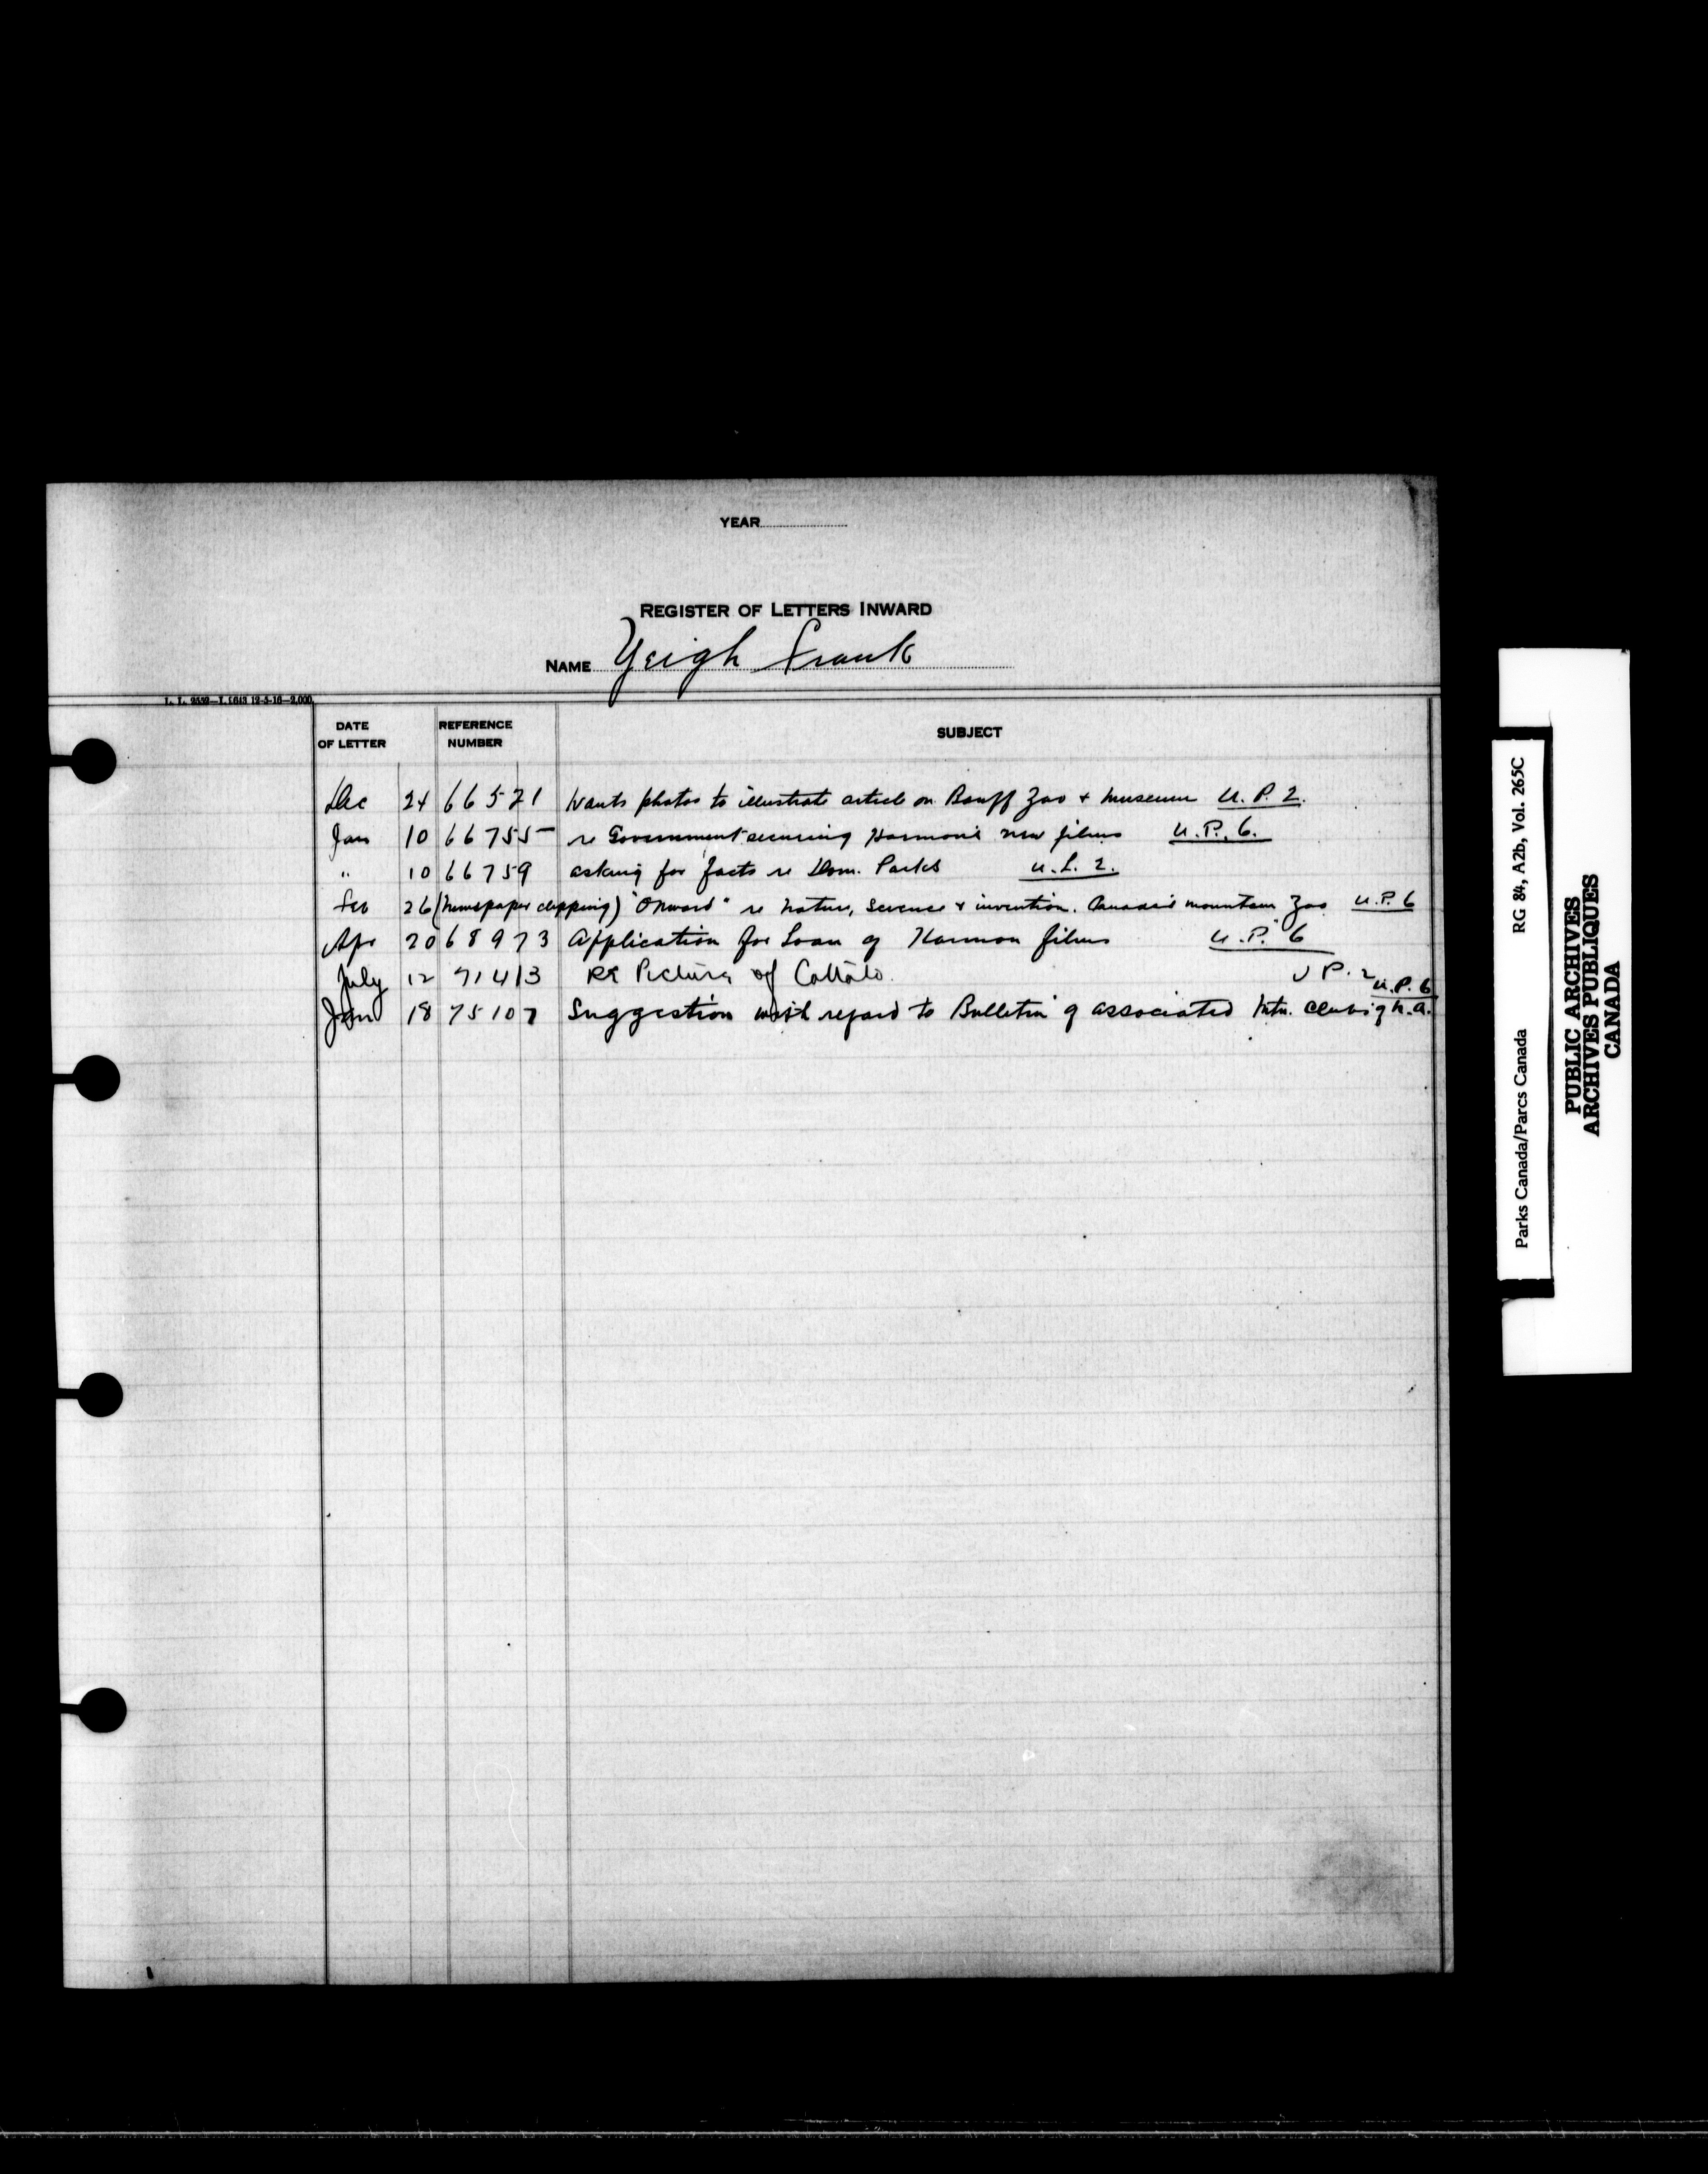 YEAR
REGISTER OF LETTERS INWARD
NAME Yeigh Frank
DATE OF LETTER REFERENCE NUMBER SUBJECT
Dec 24 66521 Wants photos to illustrate article on Banff Zoo & Museum U.P.2.
Jan 10 66755 re Government securing Harmon's new films U.P.6.
" 10 66759 asking for facts re Dom. Parks U.L.2.
Feb 26 (Newspaper clipping) "Onward" re Nature, Science & invention. Canada's mountain Zoo U.P.6
Apr 20 68973 Application for Loan of Harmon films U.P. 6
July 12 71413 Re Picture of Cattalo. U P. 2
Jan 18 75107 Suggestion with regard to Bulletin of associated Mtn. Clubs of N.A. U.P.6
Parks Canada/Parcs Canada RG 84, A2b, Vol. 265C
PUBLIC ARCHIVES
ARCHIVES PUBLIQUES
CANADA